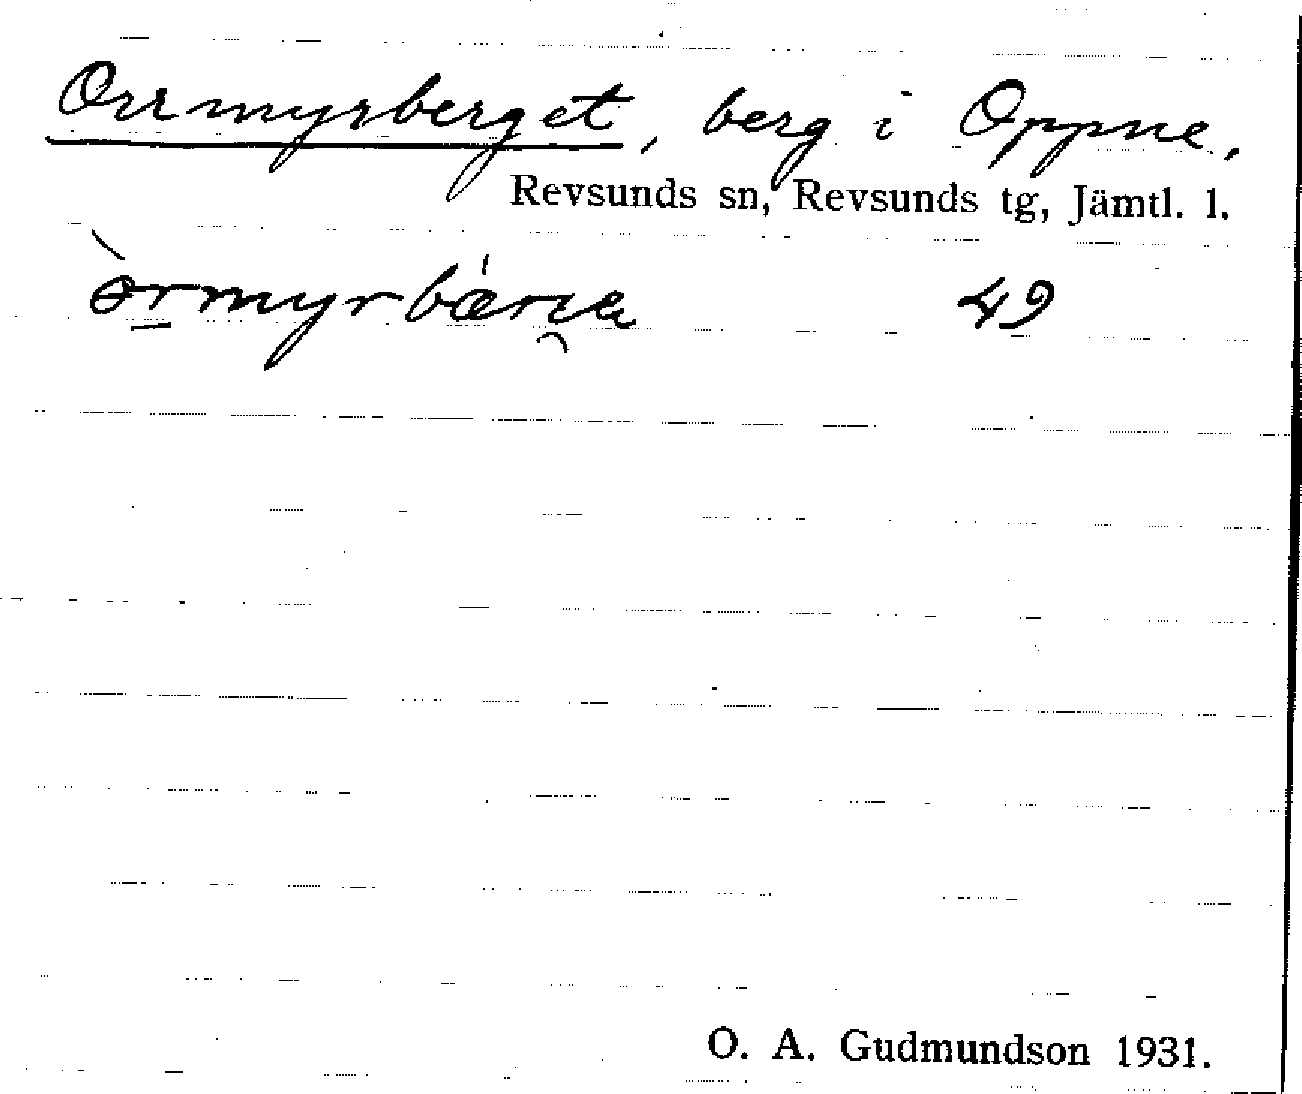 Orrmyrberget, berg i Oppne,
Revsunds sn, Revsunds tg, Jämtl. l.
49
O. A. Gudmundson 1931.